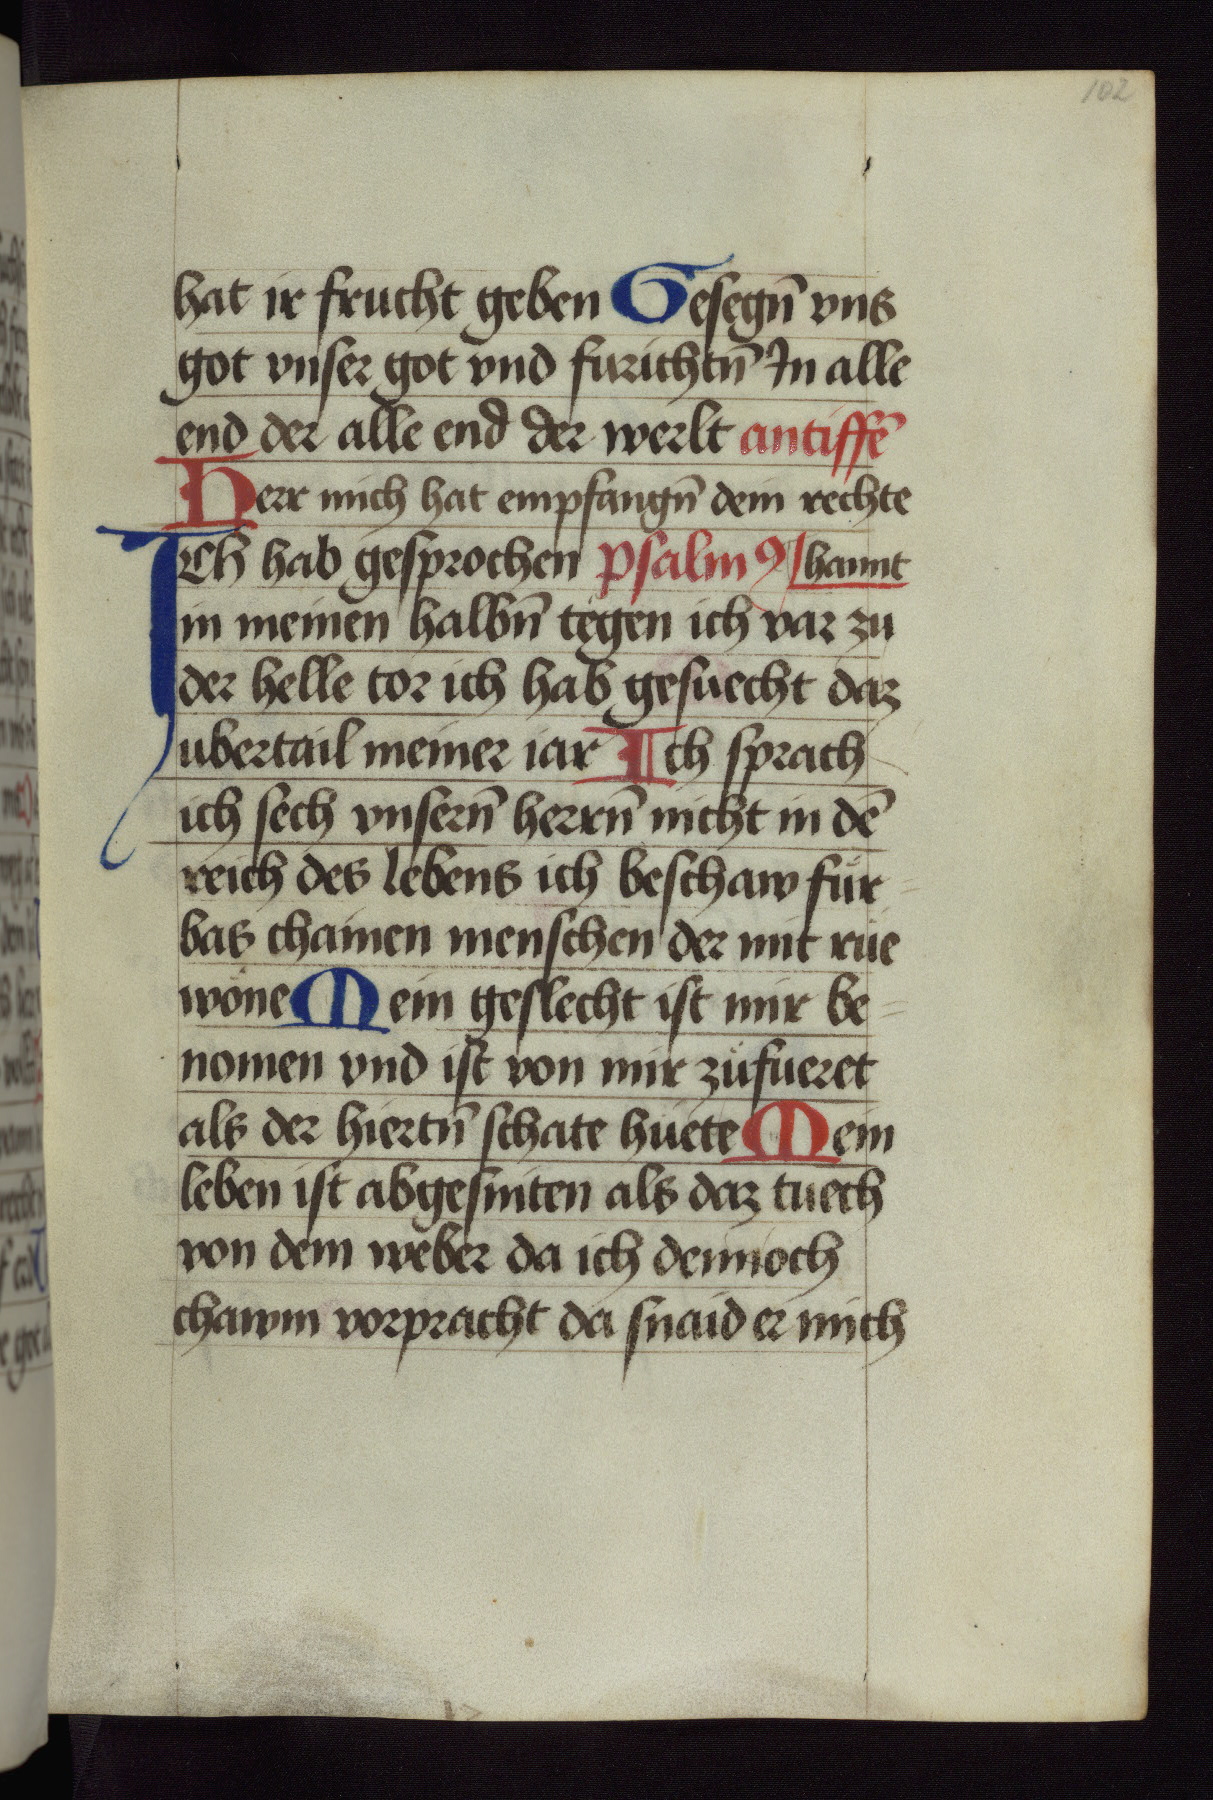 102
hat ir frucht geben Gesegn̄ vns
got vnser got vnd furichtn̄ In alle
end der alle end der werlt antiffē
Herr mich hat empfangn̄ dein rechte
Ich hab gesprochen psalm haunt
in meinen halbn̄ tegen ich var zu
der helle tor ich hab gesuecht daz
ubertail meiner iar Ich sprach
ich sech vnsern̄ herrn̄ nicht in dē
reich des lebens ich beschaw fur=
bas chainen menschen der mit rue
wone Mein geslecht ist mir be=
nomen vnd ist von mir zufueret
als der hiertn̄ schate huete Mein
leben ist abgesniten als daz tuech
von dem weber da ich dennoch
chawm vorpracht da snaid er mich